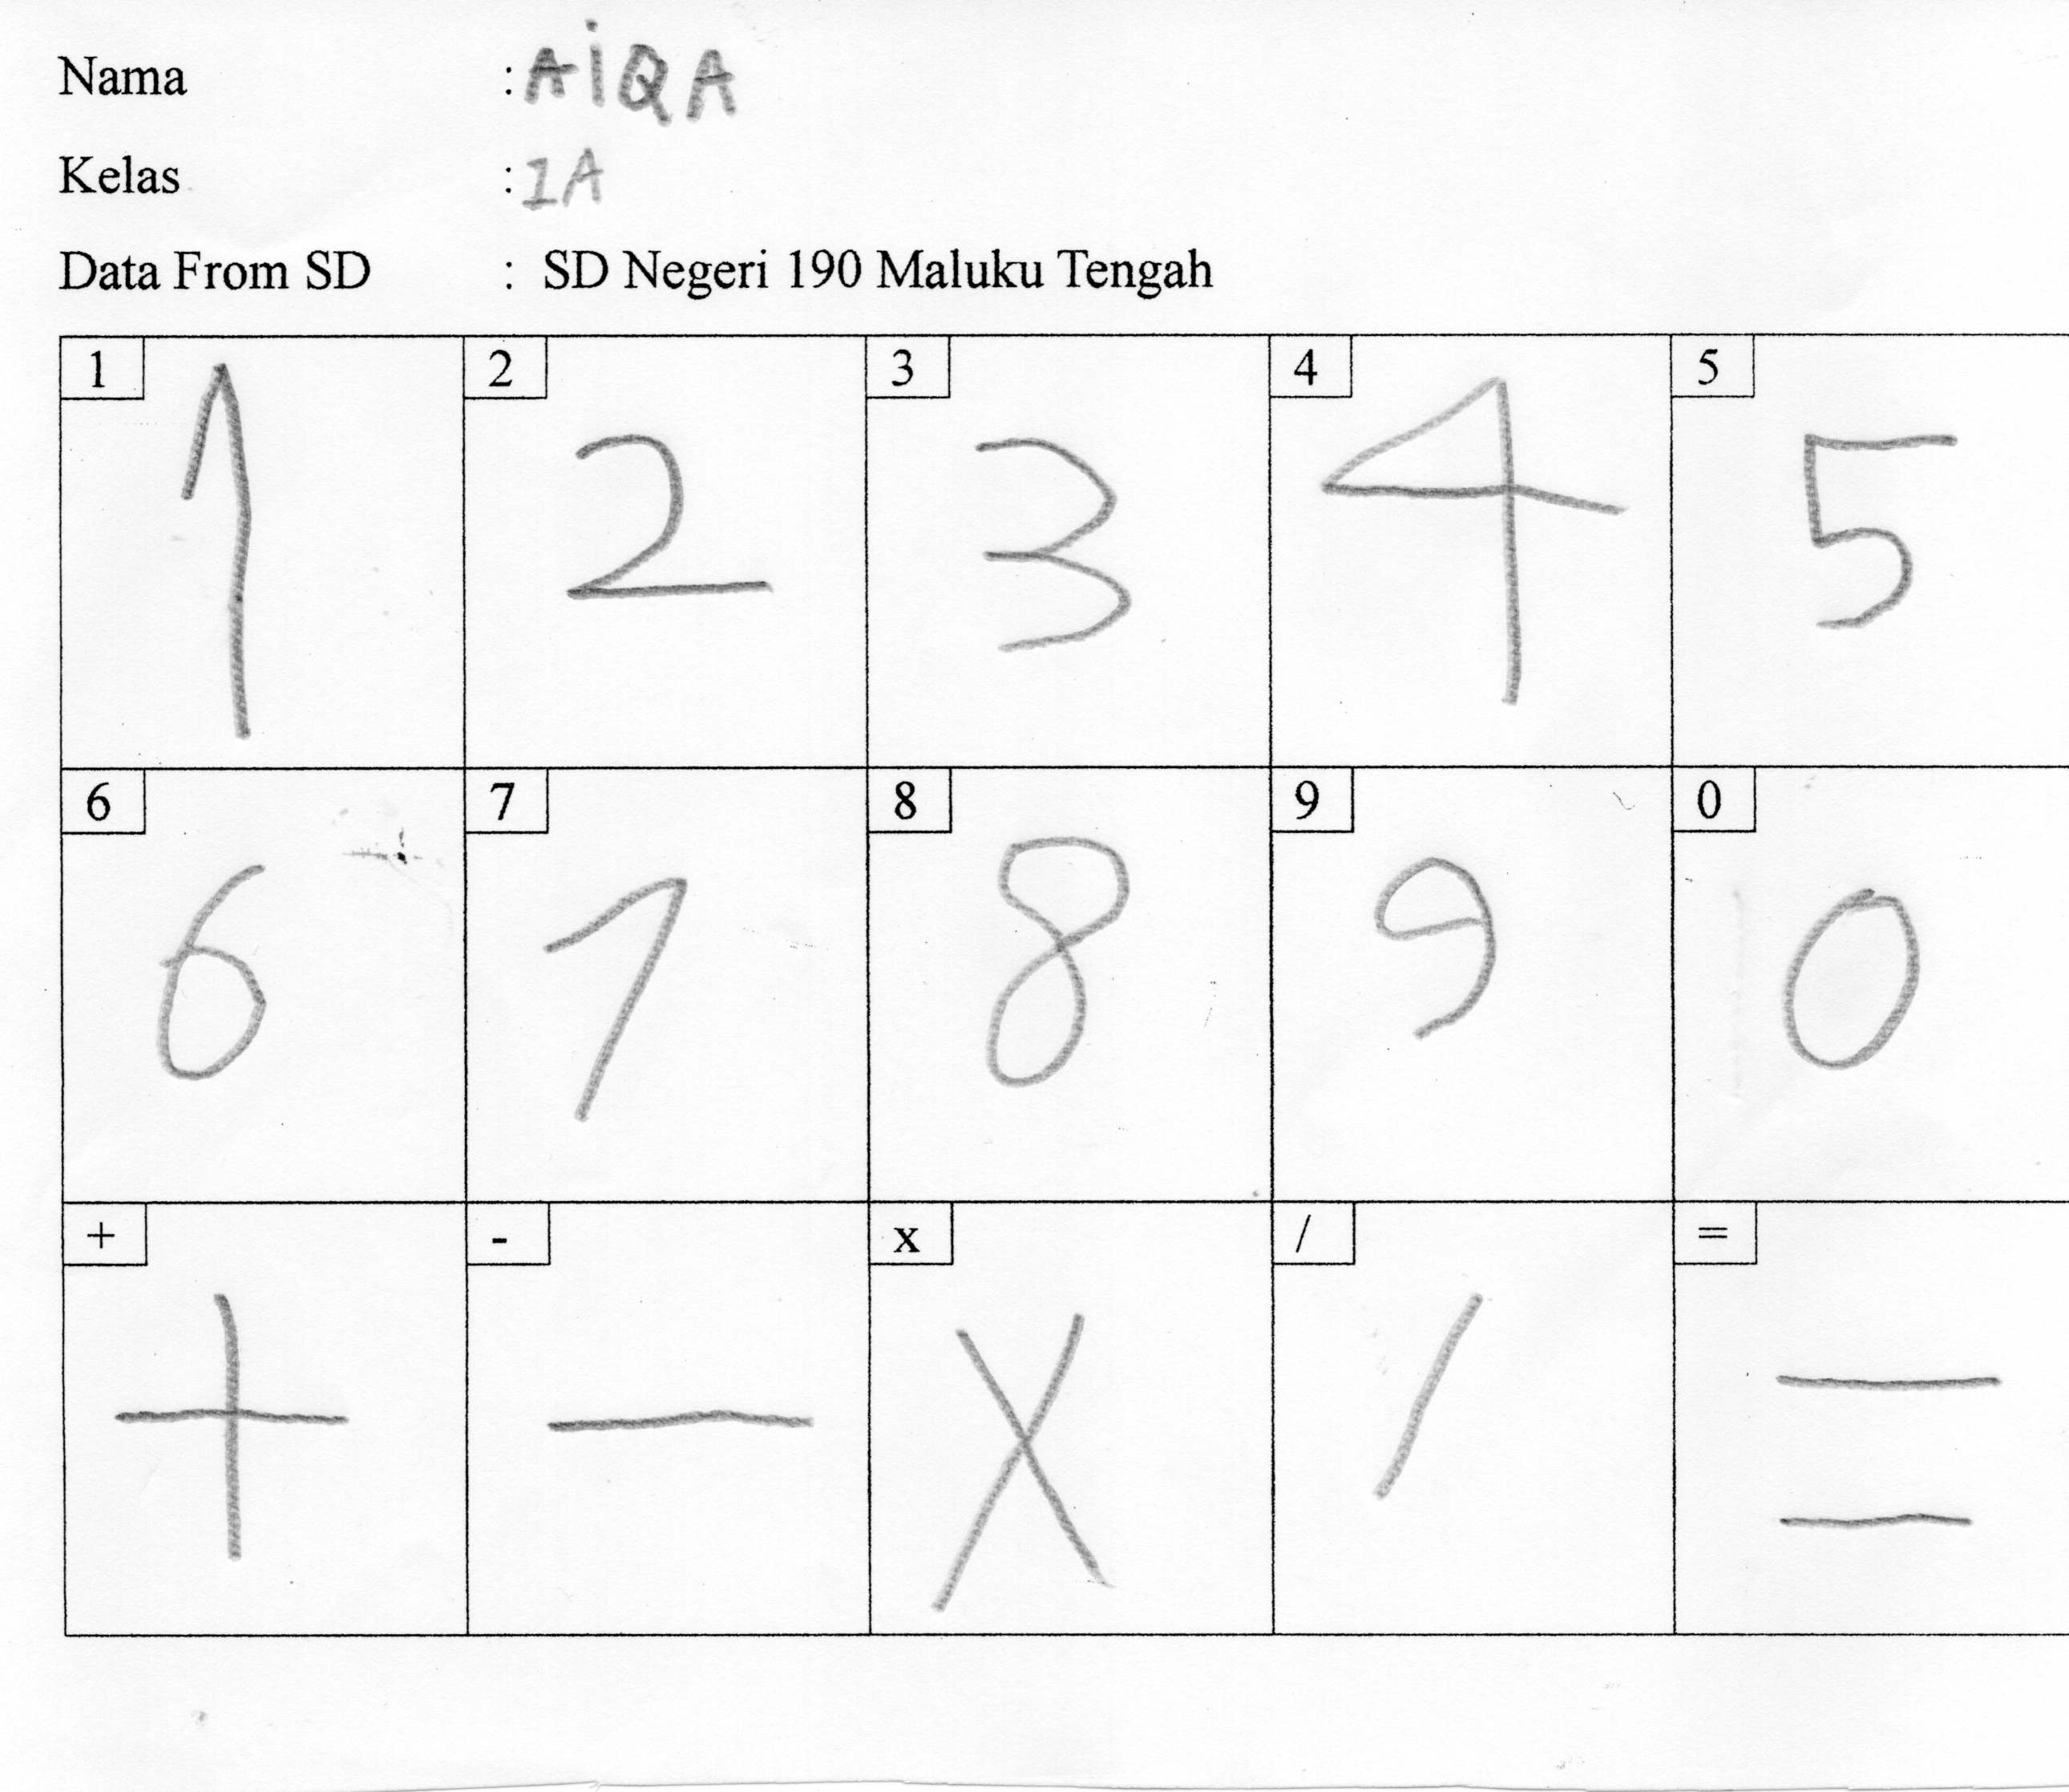 Nama : AiQA
Kelas : 1A
Data From SD : SD Negeri 190 Maluku Tengah
1 2 3 4 5
1 2 3 4 5
6 7 8 9 0
6 7 8 9 0
+ - x / =
+ - x / =